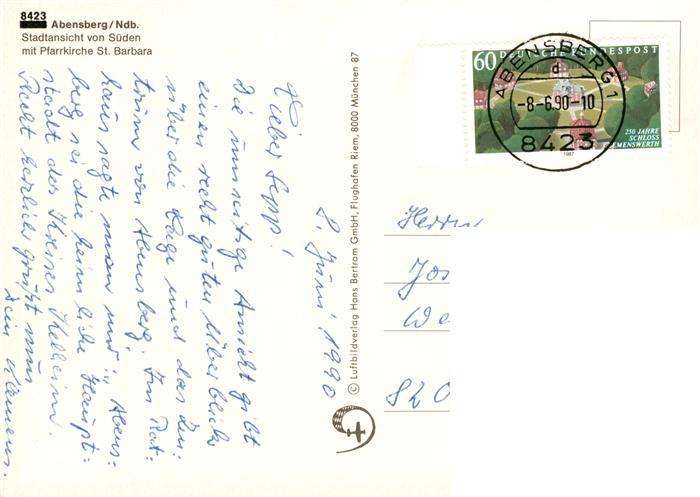 8423
Abensberg/Ndb.
Stadtansicht von Süden
mit Pfarrkirche St. Barbara
8. Juni 1990
Lieber Sepp!
Die umseitige Ansicht gibt
einen recht guten Überblick
über die Lage und das Zen=
trum von Abensberg. Im Rat=
haus sagte man mir: Abens=
berg sei die heimliche Haupt=
stadt des Kreises Kelheim.
Recht herzlich grüßt nun
Dein Klemens.
© Luftbildverlag Hans Bertram GmbH, Flughafen Riem, 8000 München 87
60 DEUTSCHE BUNDESPOST
250 JAHRE
SCHLOSS
CLEMENSWERTH
1987
ABENSBERG 1
d
-8.-6.90-10
8423
Herrn
Jos
We
820